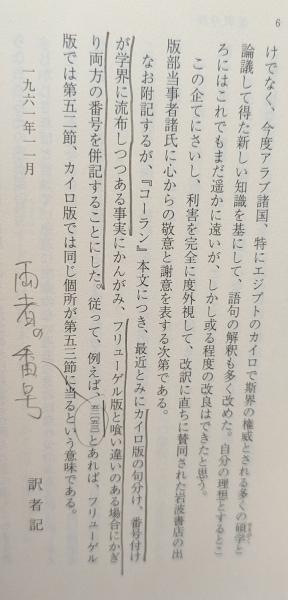 6
けでなく、今度アラブ諸国、特にエジプトのカイロで斯界の権威とされる多くの碩学と
論議して得た新しい知識を基にして、語句の解釈も多く改めた。自分の理想とするとこ
ろにはこれでもまだ遥かに遠いが、しかし或る程度の改良はできたと思う。
この企てにさいし、利害を完全に度外視して、改訳に直ちに賛同された岩波書店の出
版部当事者諸氏に心からの敬意と謝意を表する次第である。
なお附記するが、『コーラン』本文につき、最近とみにカイロ版の句分け、番号付け
が学界に流布しつつある事実にかんがみ、フリューゲル版と喰い違いのある場合にかぎ
り両方の番号を併記することにした。従って、例えば、五二(五三)とあれば、フリューゲル
版では第五二節、カイロ版では同じ個所が第五三節に当るという意味である。
一九六一年一一月
訳者記
両者の番号